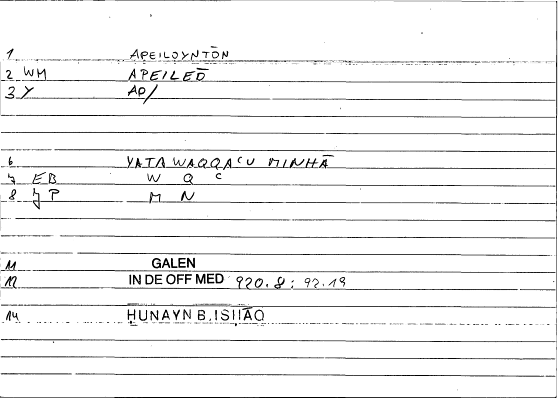 1 APEILOYNTŌN
2 WM APEILEŌ
3 Y AP/
6 YATA WAQQAʿU MINHĀ
7 EB W Q ʿ
8 JP M N
11 GALEN
12 IN DE OFF MED 920.8 : 92.19
14 ḤUNAYN B. ISḤĀQ